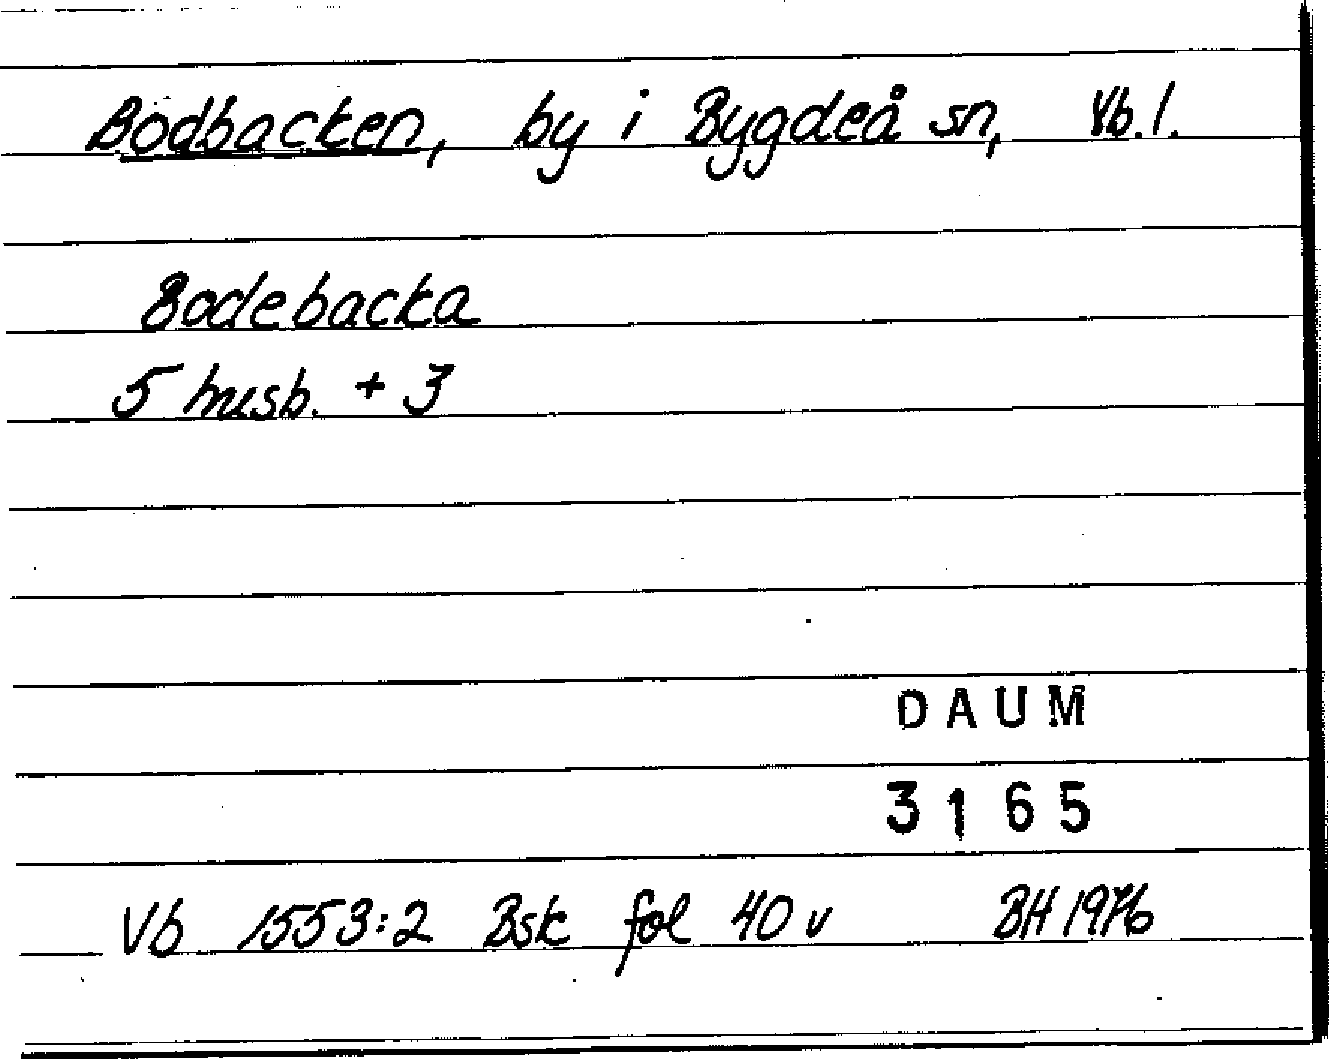 Bodbacken, by i Bygdeå sn, Vb.l.
Bodebacka
5 husb. + 3
DAUM
3165
Vb 1553:2 Bsk fol 40 v BH 1976